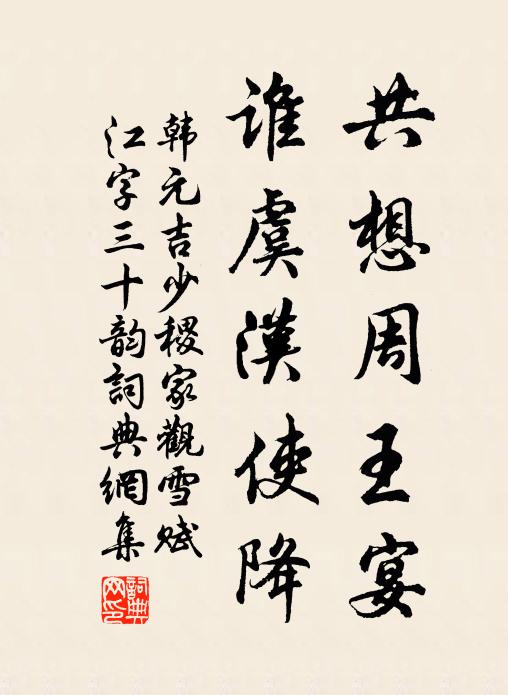 共想周王宴
谁虞漢使降
韩元吉少稷家觀雪赋
江字三十韵詞典網集
詞典网印